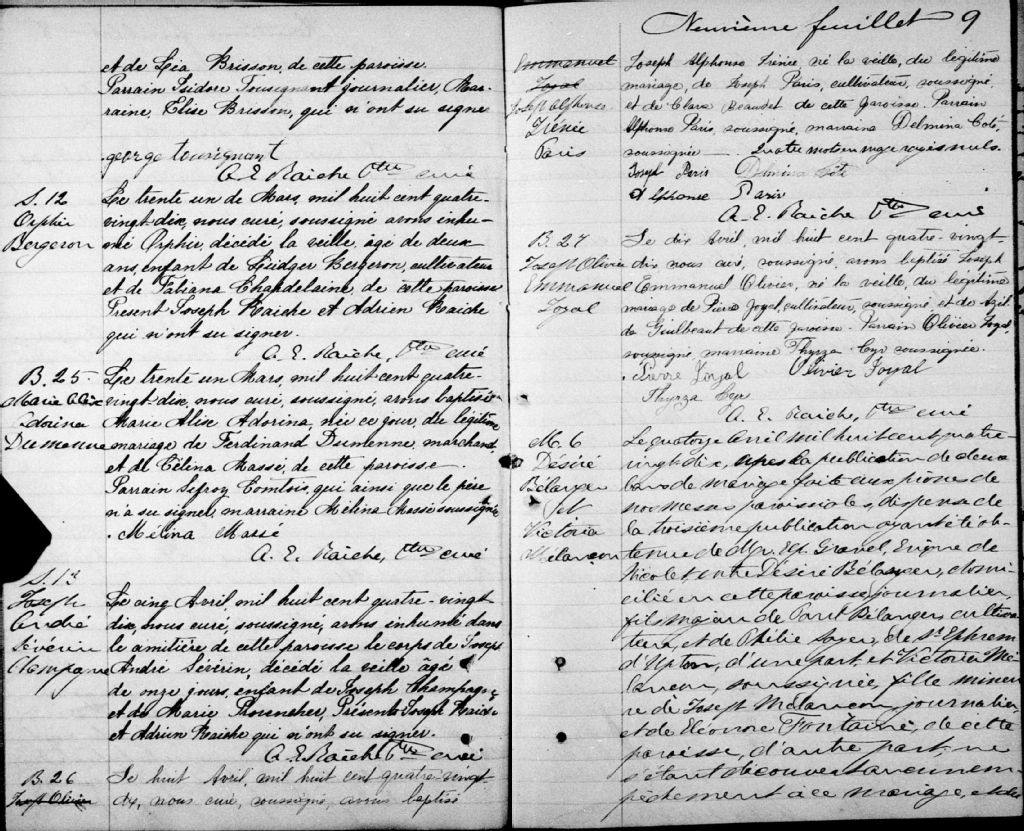 et de Léa Brisson, de cette paroisse.
Parrain Isidore Tousignant journalier, Mar-
raine, Elise Brisson, qui n'ont su signé
george tousignant
A. E. Raiche Ptre curé
S. 12
Orphir
Bergeron
Le trente un de Mars, mil huit cent quatre-
vingt-dix, nous curé, soussigné avons inhu-
mé Orphir, décédé la veille, agé de deux
ans, enfant de Leidger Bergeron, cultivateur
et de Tatiana Chapdelaine de cette paroisse
Present Joseph Raiche et Adrien Raiche
qui n'ont su signer.
A. E. Raiche, Ptre curé
B. 25
Marie Alix
Adorina
Dumenne
Le trente un Mars, mil huit cent quatre-
vingt-dix, nous curé, soussigné, avons baptisé
Marie Alise Adorina, née ce jour, du légitime
mariage de Ferdinand Dumenne, marchand,
et de Célina Massé, de cette paroisse.
Parrain Sifroy Comtois, qui ainsi que le père
n'a su signer, marraine Mélina Massé soussignée
Mélina Massé
A. E. Raiche, Ptre curé
S. 13
Joseph
André
Sévérin
Champagne
Le cinq Avril, mil huit cent quatre-vingt
dix, nous curé, soussigné, avons inhumé dans
le cimitière de cette paroisse le corps de Joseph
André Sévérin, décédé la veille âgé
de onze jours, enfant de Joseph Champagne
et de Marie Prouncher, Présents Joseph Raiche
et Adrien Raiche qui n'ont su signer.
A. E. Raiche Ptre curé
B. 26
Josph Olivier
Le huit Avril, mil huit cent quatre-vingt
dix, nous curé, soussigné, avons baptisé
Neuvième feuillet 9
Emmanuel
Joyal
Joseph Alphonse
Irénée
Paris
Joseph Alphonse Irénée né la veille, du légitime
mariage, de Joseph Paris, cultivateur, soussigné
et de Clara Beaudet de cette paroisse. Parrain
Alphonse Paris, soussigné, marraine Delmina Coté,
soussignée — Quatre mots en marge rayés nuls.
Joseph Paris Delmina Côté
Alphonse Paris
A. E. Raiche Ptre curé
B. 27
Joseph Olivier
Emmanuel
Joyal
Le dix Avril, mil huit cent quatre-vingt-
dix nous curé, soussigné, avons baptisé Joseph
Emmanuel Olivier, né la veille, du légitime
mariage de Pierre Joyal, cultivateur, soussigné et de Azil-
da Guilbeaut de cette paroisse. Parrain Olivier Joyal,
soussigné, marraine Thyrza Cyr soussignée.
Pierre Joyal Olivier Joyal
Thyrza Cyr
A. E. Raiche, Ptre curé
M. 6
Désiré
Bélanger
et
Victoria
Mélançon
Le quatorze Avril mil huit cent quatre
vingt dix, après la publication de deux
bans de mariage faite aux prônes de
nos messes paroissiales, dispense de
la troisième publication ayant été ob-
tenue de Mgr. Elp. Gravel, Evêque de
Nicolet entre Désiré Bélanger, domi-
cilié en cette paroisse, journalier,
fils majeur de Bélanger, cultiva-
teur, et de Ophilie de St Ephrem
d'Upton, d'une part, et Victoria Mé-
lancon, soussignée, fille mineu-
re de Joseph Melancon, journalier,
et de Eléonore Fontaine, de cette
paroisse, d'autre part, ne
s'étant découvert aucun em-
pêchement à ce mariage, et du